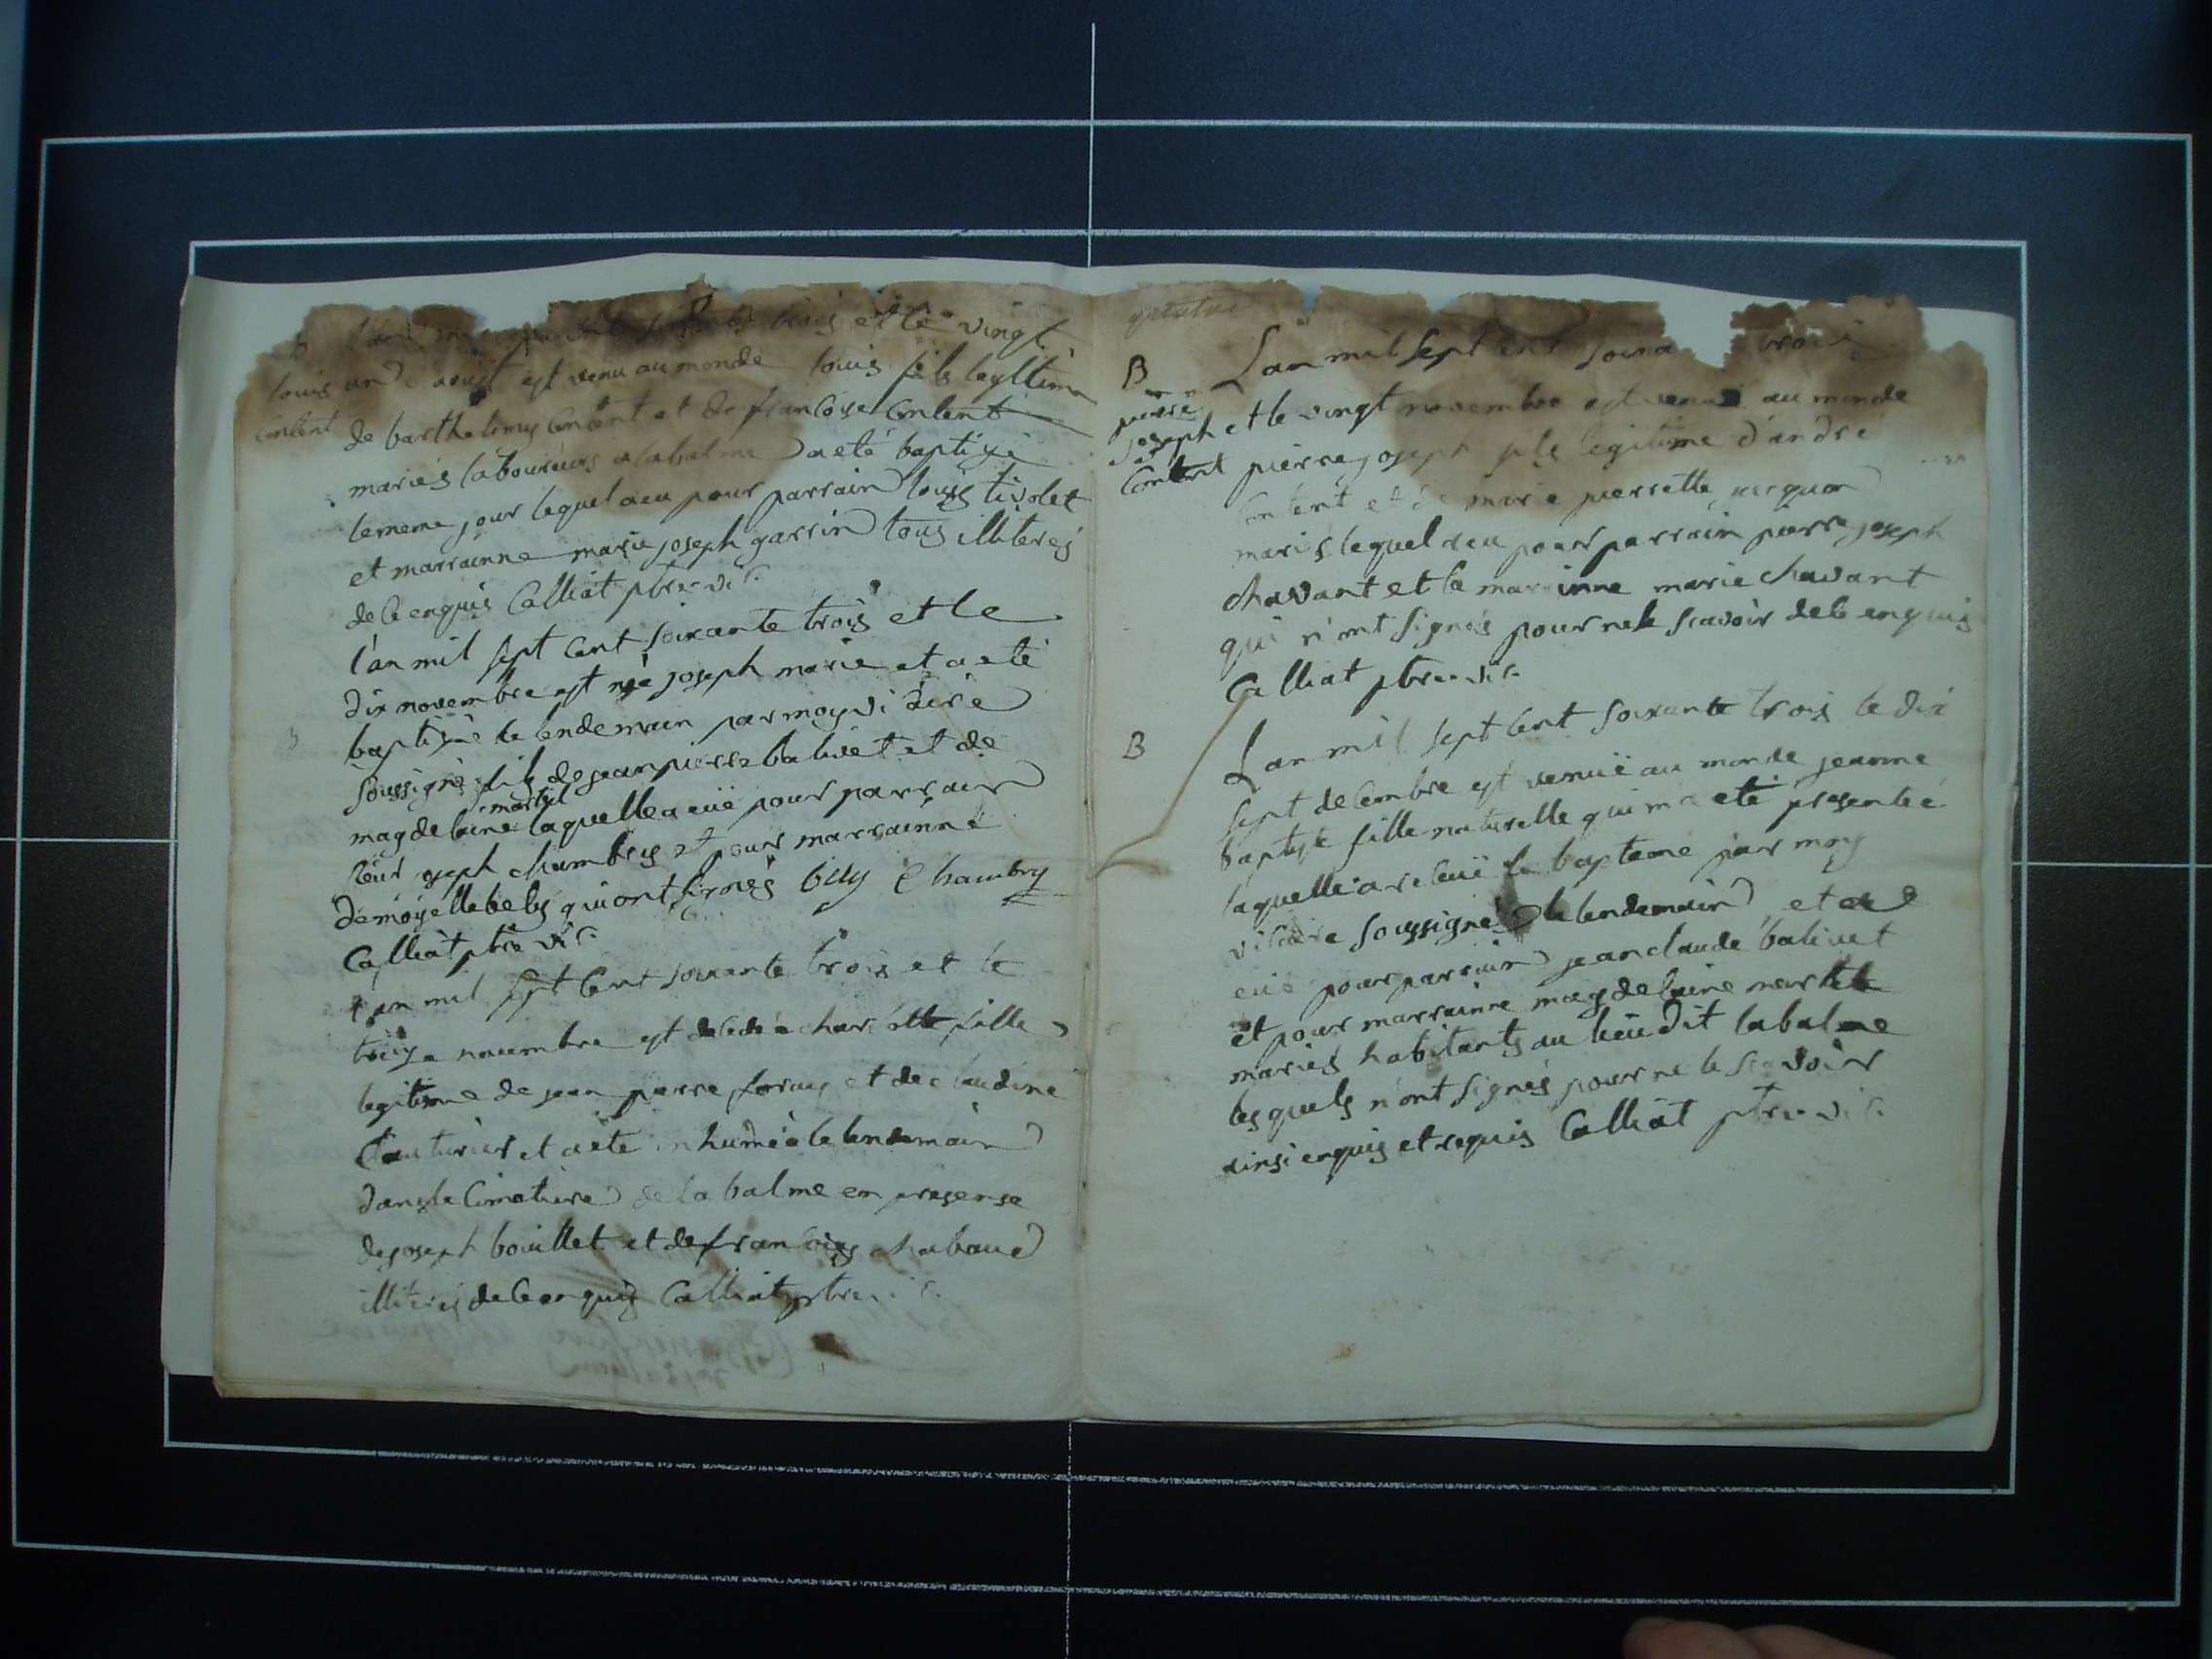 B
trois et le vingt
louis
Content
un d aoust est venu au monde louis fils legitime
de barthelemy Content et de francoise Content
mariés laboureurs a labalme a eté baptizé
le meme jour lequel a eu pour parrain louis tivolet
et marrainne marie joseph garrin tous illiterés
de ce enquis Calliat ptre vic.
l'an mil sept cent soixante trois et le
dix novembre est né joseph marie et a eté
B
baptisé le lendemain par moy vicaire
soussigné fils de jean pierre balivet et de
martel
magdelaine laquelle a euë pour parrain
sieur joseph chambry et pour marrainne
demoyselle bely qui ont signés bily Chambry
Calliat ptre vic.
l'an mil sept cent soixante trois et le
treize novembre est decedée charlotte fille
legitime de jean pierre foray et de claudine
Couturier et a eté inhumée le lendemain
dans le Cimetiere de la balme en presense
de joseph bouillet et de francois chabaud
illiterés de ce enquis Calliat ptre vic.
B
L'an mil sept cent soixa trois
pierre
joseph
Content
et le vingt novembre est venu au monde
pierre joseph fils legitime d'andre
Content et de marie pierrette jacquon
mariés lequel a eu pour parrain pierre joseph
chavant et la marrinne marie chavant
qui n'ont signés pour ne le scavoir de ce enquis
Calliat ptre vic.
B
L'an mil sept cent soixante trois le dix
sept decembre est venuë au monde jeanne
baptiste fille naturelle qui m'a eté presentée
laquelle a receüe le bapteme par moy
vicaire soussigné le lendemain et a
euë pour parrain jean claude balivet
et pour marrainne magdelaine martel
mariés habitants au lieu dit labalme
les quels n'ont signés pour ne le scavoir
ainsi enquis et requis Calliat ptre vic.